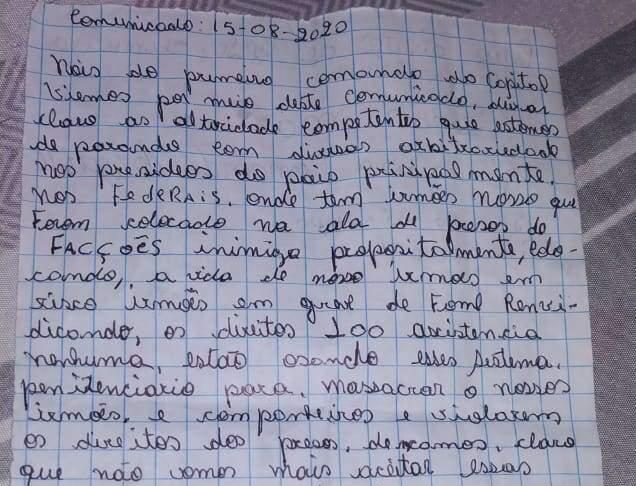 Comunicado: 15-08-2020
Nois do primeiro comando do Capital
viemos por meio deste comunicado, dixar
claro as altoridade competentes que estamos
de parando com diversas arbitrariedade
nos presideos do pais prisipalmente,
nos FedeRAis, onde tem irmões nosso que
Foram colocado na ala de presos de
FACÇOES inimiga propositalmente, colo-
cando,, a vida de nosso irmoes em
risco irmões em greve de Fome Renvi-
dicando, os direitos 100 assistencia
nenhuma, estão osando esses sistema.
penitenciario para, massacrar o nossos
irmões, e companheiros e violarem
os direitos dos presos, dexamos, claro
que não vamos mais aceitar essas